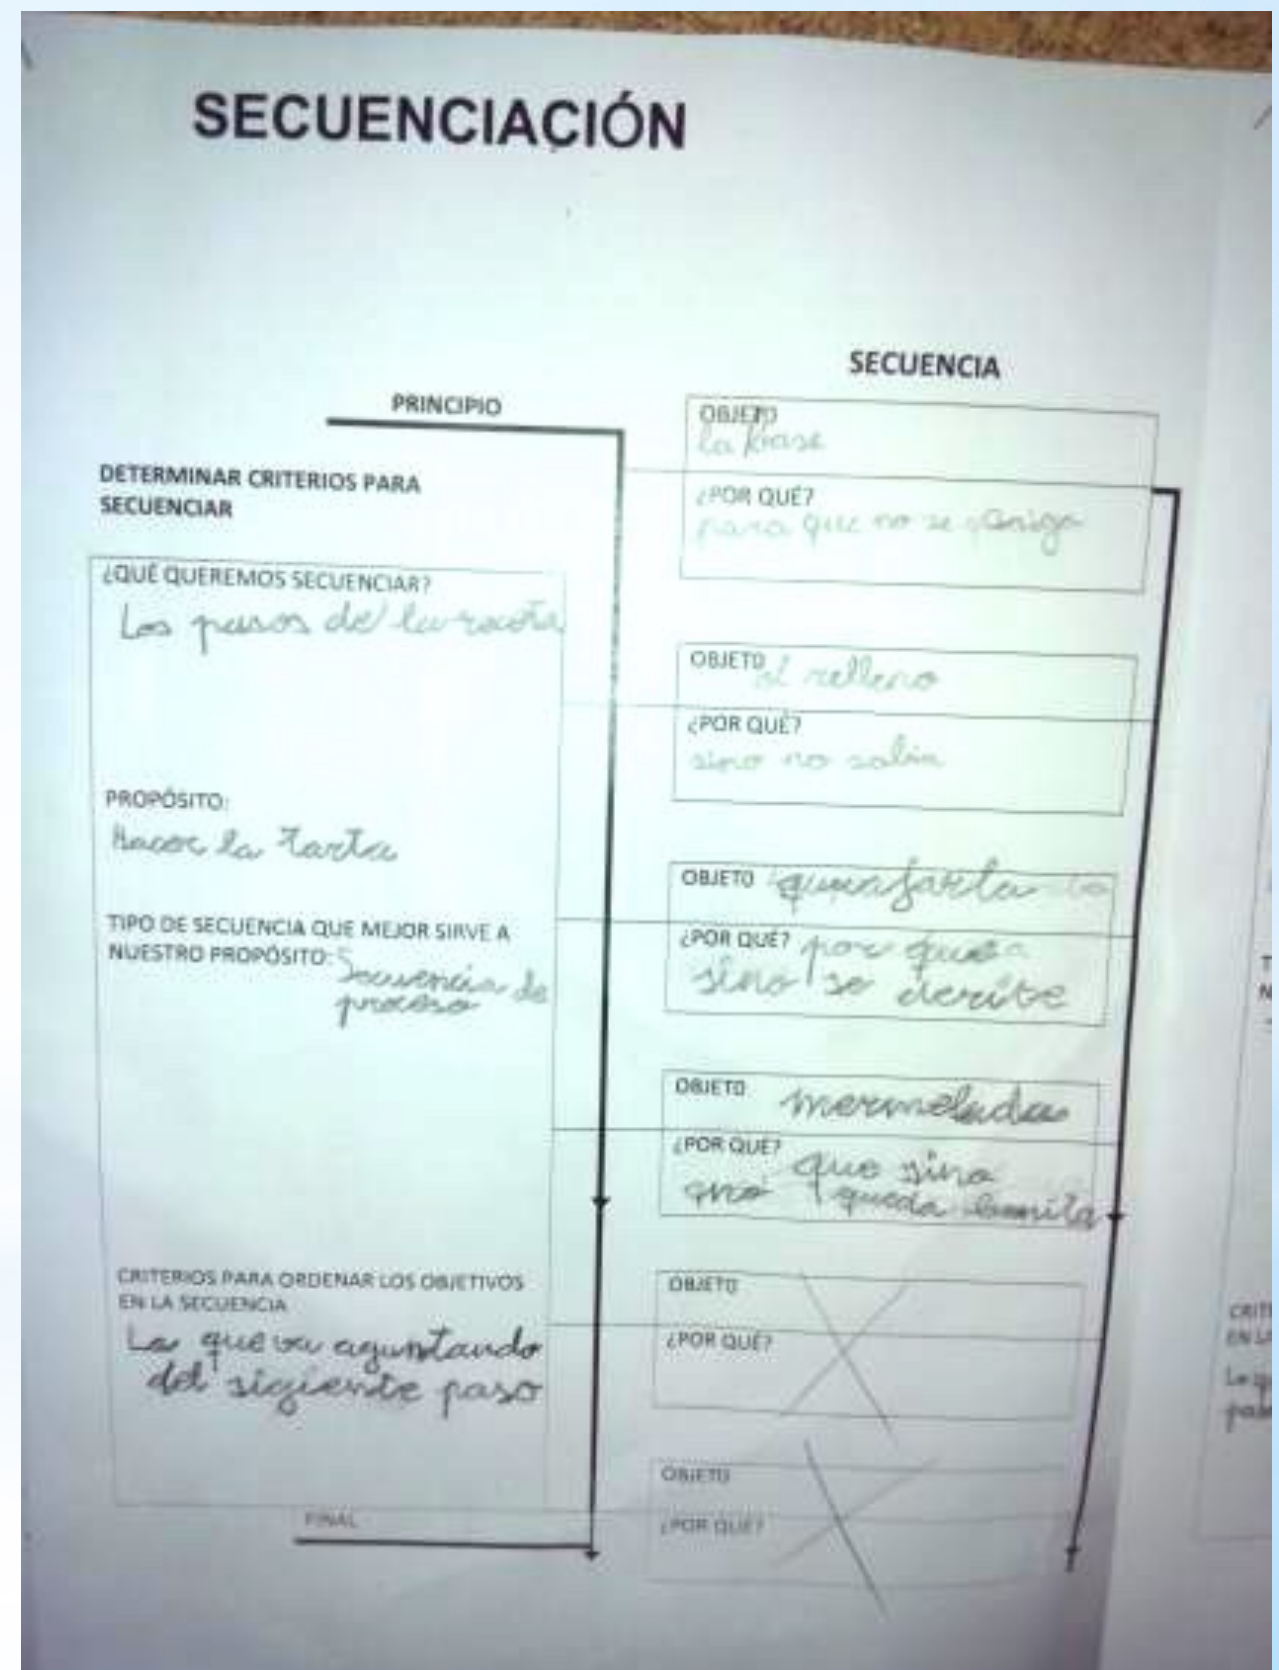 SECUENCIACIÓN
SECUENCIA
PRINCIPIO
DETERMINAR CRITERIOS PARA
SECUENCIAR
¿QUÉ QUEREMOS SECUENCIAR?
Los pasos de la receta
PROPÓSITO:
Hacer la tarta
TIPO DE SECUENCIA QUE MEJOR SIRVE A
NUESTRO PROPÓSITO: Secuencia de
proceso
CRITERIOS PARA ORDENAR LOS OBJETIVOS
EN LA SECUENCIA
Lo que va aguntando
del sigiente paso
FINAL
OBJETO
la base
¿POR QUÉ?
para que no se
OBJETO el relleno
¿POR QUÉ?
sino no
OBJETO
¿POR QUÉ? por que
sino se derite
OBJETO mermelada
¿POR QUÉ? que sino
no queda bonita
OBJETO
¿POR QUÉ?
OBJETO
¿POR QUÉ?
T
N
CRITE
EN LA
Lo qu
paso